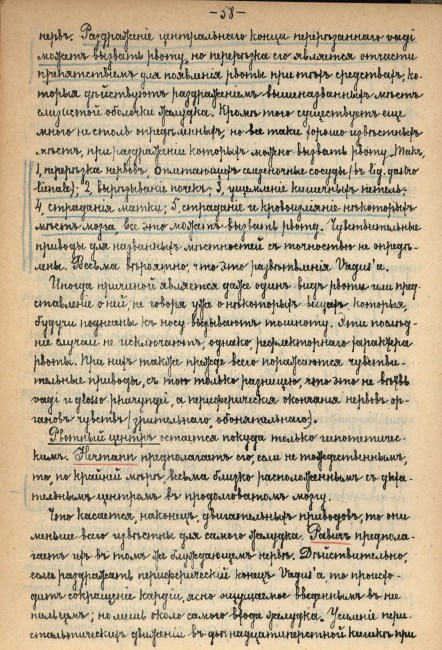 —58—
нервъ. Раздраженіе центральнаго конца перерѣзаннаго vagi
можетъ вызвать рвоту, но перерѣзка его является отчасти
препятствіемъ для появленія рвоты при тѣхъ средствахъ, ко-
торыя дѣйствуютъ раздраженіемъ вышеназванныхъ мѣстъ
слизистой оболочки желудка. Кромѣ того существуетъ еще
много не столь опредѣленныхъ, но все таки хорошо извѣстныхъ
мѣстъ, при раздраженіи которыхъ можно вызвать рвоту. Такъ,
1, перерѣзка нервовъ, оплетающихъ селезеночные сосуды (въ lig. gastro
lienale); 2, вырѣзываніе почекъ; 3, ущемленіе кишечныхъ петель;
4, страданія матки; 5, страданіе и кровоизліяніе нѣкоторыхъ
мѣстъ мозга все это можетъ вызвать рвоту. Чувствительные
приводы для названныхъ мѣстностей съ точностью не опредѣ-
лены. Весьма вѣроятно, что это развѣтвленія Vagus'a.
Иногда причиной является даже одинъ видъ рвоты или пред-
ставленіе о ней, не говоря уже о нѣкоторыхъ вещахъ, которыя,
будучи поднесены къ носу вызываютъ тошноту. Эти послѣд-
ніе случаи не исключаютъ, однако, рефлекторнаго характера
рвоты. При нихъ также прежде всего поражаются чувстви-
тельные приводы, съ тою только разницею, что это не вѣтвь
vagi и glosso pharyngei, а периферическія окончанія нервовъ ор-
гановъ чувствъ (зрительнаго, обонятельнаго).
Рвотный центръ остается покуда только гипотетичес-
кимъ. Hermann предполагаетъ его, если не тождественнымъ,
то, по крайней мѣрѣ, весьма близко расположеннымъ съ дыха-
тельнымъ центромъ въ продолговатомъ мозгу.
Что касается, наконецъ, двигательныхъ приводовъ, то они
меньше всего извѣстны для самого желудка. Равичъ предпола-
гаетъ ихъ въ томъ же блуждающемъ нервѣ. Дѣйствительно,
если раздражать периферическій конецъ Vagus'a, то происхо-
дитъ сокращеніе кардіи, ясно ощущаемое введеннымъ въ нее
пальцемъ; но лишь около самого входа желудка. Усиленіе пери-
стальтическихъ движеній въ двѣнадцатиперстной кишкѣ при